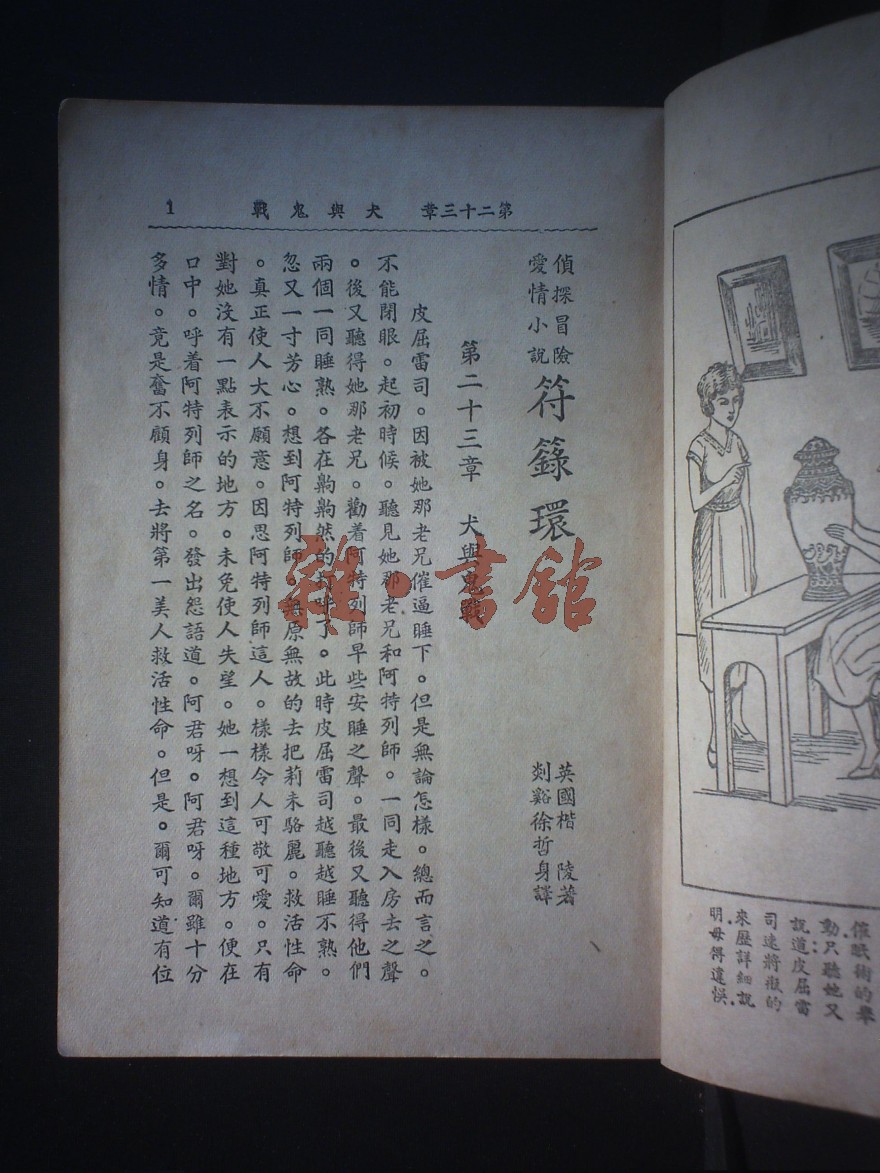 催眠術的舉
動只聽她又
說道皮屈雷
司速將瓶的
來歷詳細說
明毋得違悞.
第二十三章 犬與鬼戰 1
偵探冒險
愛情小說
符籙環
英國楷陵著
剡谿徐哲身譯
第二十三章 犬與鬼戰
皮屈雷司。因被她那老兄催逼睡下。但是無論怎樣。總而言之。
不能閉眼。起初時候。聽見她那老兄和阿特列師。一同走入房去之聲
。後又聽得她那老兄。勸着阿特列師早些安睡之聲。最後又聽得他們
兩個一同睡熟。各在齁齁然的打呼了。此時皮屈雷司越聽越睡不熟。
忽又一寸芳心。想到阿特列師。無原無故的去把莉未駱麗。救活性命
。真正使人大不願意。因思阿特列師這人。樣樣令人可敬可愛。只有
對她沒有一點表示的地方。未免使人失望。她一想到這種地方。便在
口中。呼着阿特列師之名。發出怨語道。阿君呀。阿君呀。爾雖十分
多情。竟是奮不顧身。去將第一美人救活性命。但是。爾可知道有位
雜·書館